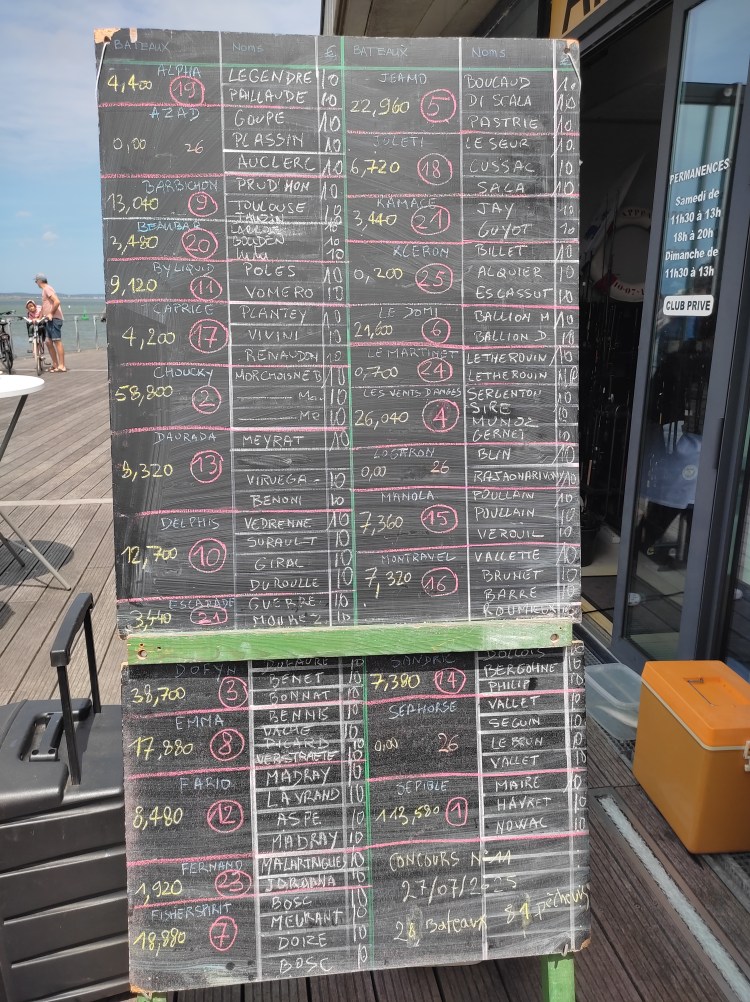 BATEAUX NOMS €
ALPHA
4,400 19
LEGENDRE 10
PAILLAUDE 10
AZAD
0,00 26
GOUPE 10
PLASSIN 10
AUCLERC 10
BARBICHON
13,040 9
PRUD'MON 10
TOULOUSE 10
BEAUBAR
3,480 20
BOUDEN 10
LULU 10
BYLIQUID
9,120 11
POLES 10
VOMERO 10
CAPRICE
4,200 17
PLANTEY 10
VIVINI 10
RENAUDON 10
CHOUCKY
58,800 2
MORCHOISNE B 10
Ma. 10
Me 10
DAURADA
8,320 13
MEYRAT 10
VIRUEGA - 10
BENONI 10
DELPHIS
12,700 10
VEDRENNE 10
SURAULT 10
GIRAL 10
DUROULLE 10
ESCAPADE
3,440 21
GUERRE 10
MOUREZ 10
BATEAUX NOMS €
JEAMO
22,960 5
BOUCAUD 10
DI SCALA 10
PASTRIE 10
JULETI
6,720 18
LESEUR 10
CUSSAC 10
SAGA 10
KAMACE
3,440 21
JAY 10
GUYOT 10
KLERON
0,200 25
BILLET 10
ALQUIER 10
ESCASSUT 10
LE DOMI
21,600 6
BALLION H 10
BALLION D. 10
LE MARTINET
0,700 24
LETHEROUIN 10
LETHEROUIN 10
LES VENTS D'ANGES
26,040 4
SERGENTON 10
SIRE 10
MUNOZ 10
GERNET 10
LOGARON
0,00 26
BLIN 10
RAJAOHARIVON 10
MANOLA
7,360 15
POULLAIN 10
POULLAIN 10
VEROUIL 10
MONTRAVEL
7,320 16
VALLETTE 10
BRUNET 10
BARRE 10
DOFYN
38,700 3
BENET 10
BONNAT 10
EMMA
17,880 8
BENNIS 10
VACHE 10
PICARD 10
VERSTRAETE 10
FARIO
8,480 12
MADRAY 10
LAVRAND 10
ASPE 10
MADRAY 10
FERNAND
1,920 23
MALARTRIGUES 10
JORDANA 10
FISHERSPIRIT
18,880 7
BOSC 10
MEURANT 10
DOIZE 10
BOSC 10
SANDRIC
7,380 14
DOLLOIS 10
BERGOHNE 10
PHILIP 10
SEAHORSE
0,00 26
VALLET 10
SEGUIN 10
LE BRUN 10
VALLET 10
SEPIOLE
113,580 1
MAIRE 10
HAVRET 10
NOWAC 10
CONCOURS N° 11
27/07/2025
28 Bateaux 81 pêcheurs
PERMANENCES
Samedi de
11h30 à 13h
18h à 20h
Dimanche de
11h30 à 13h
CLUB PRIVE